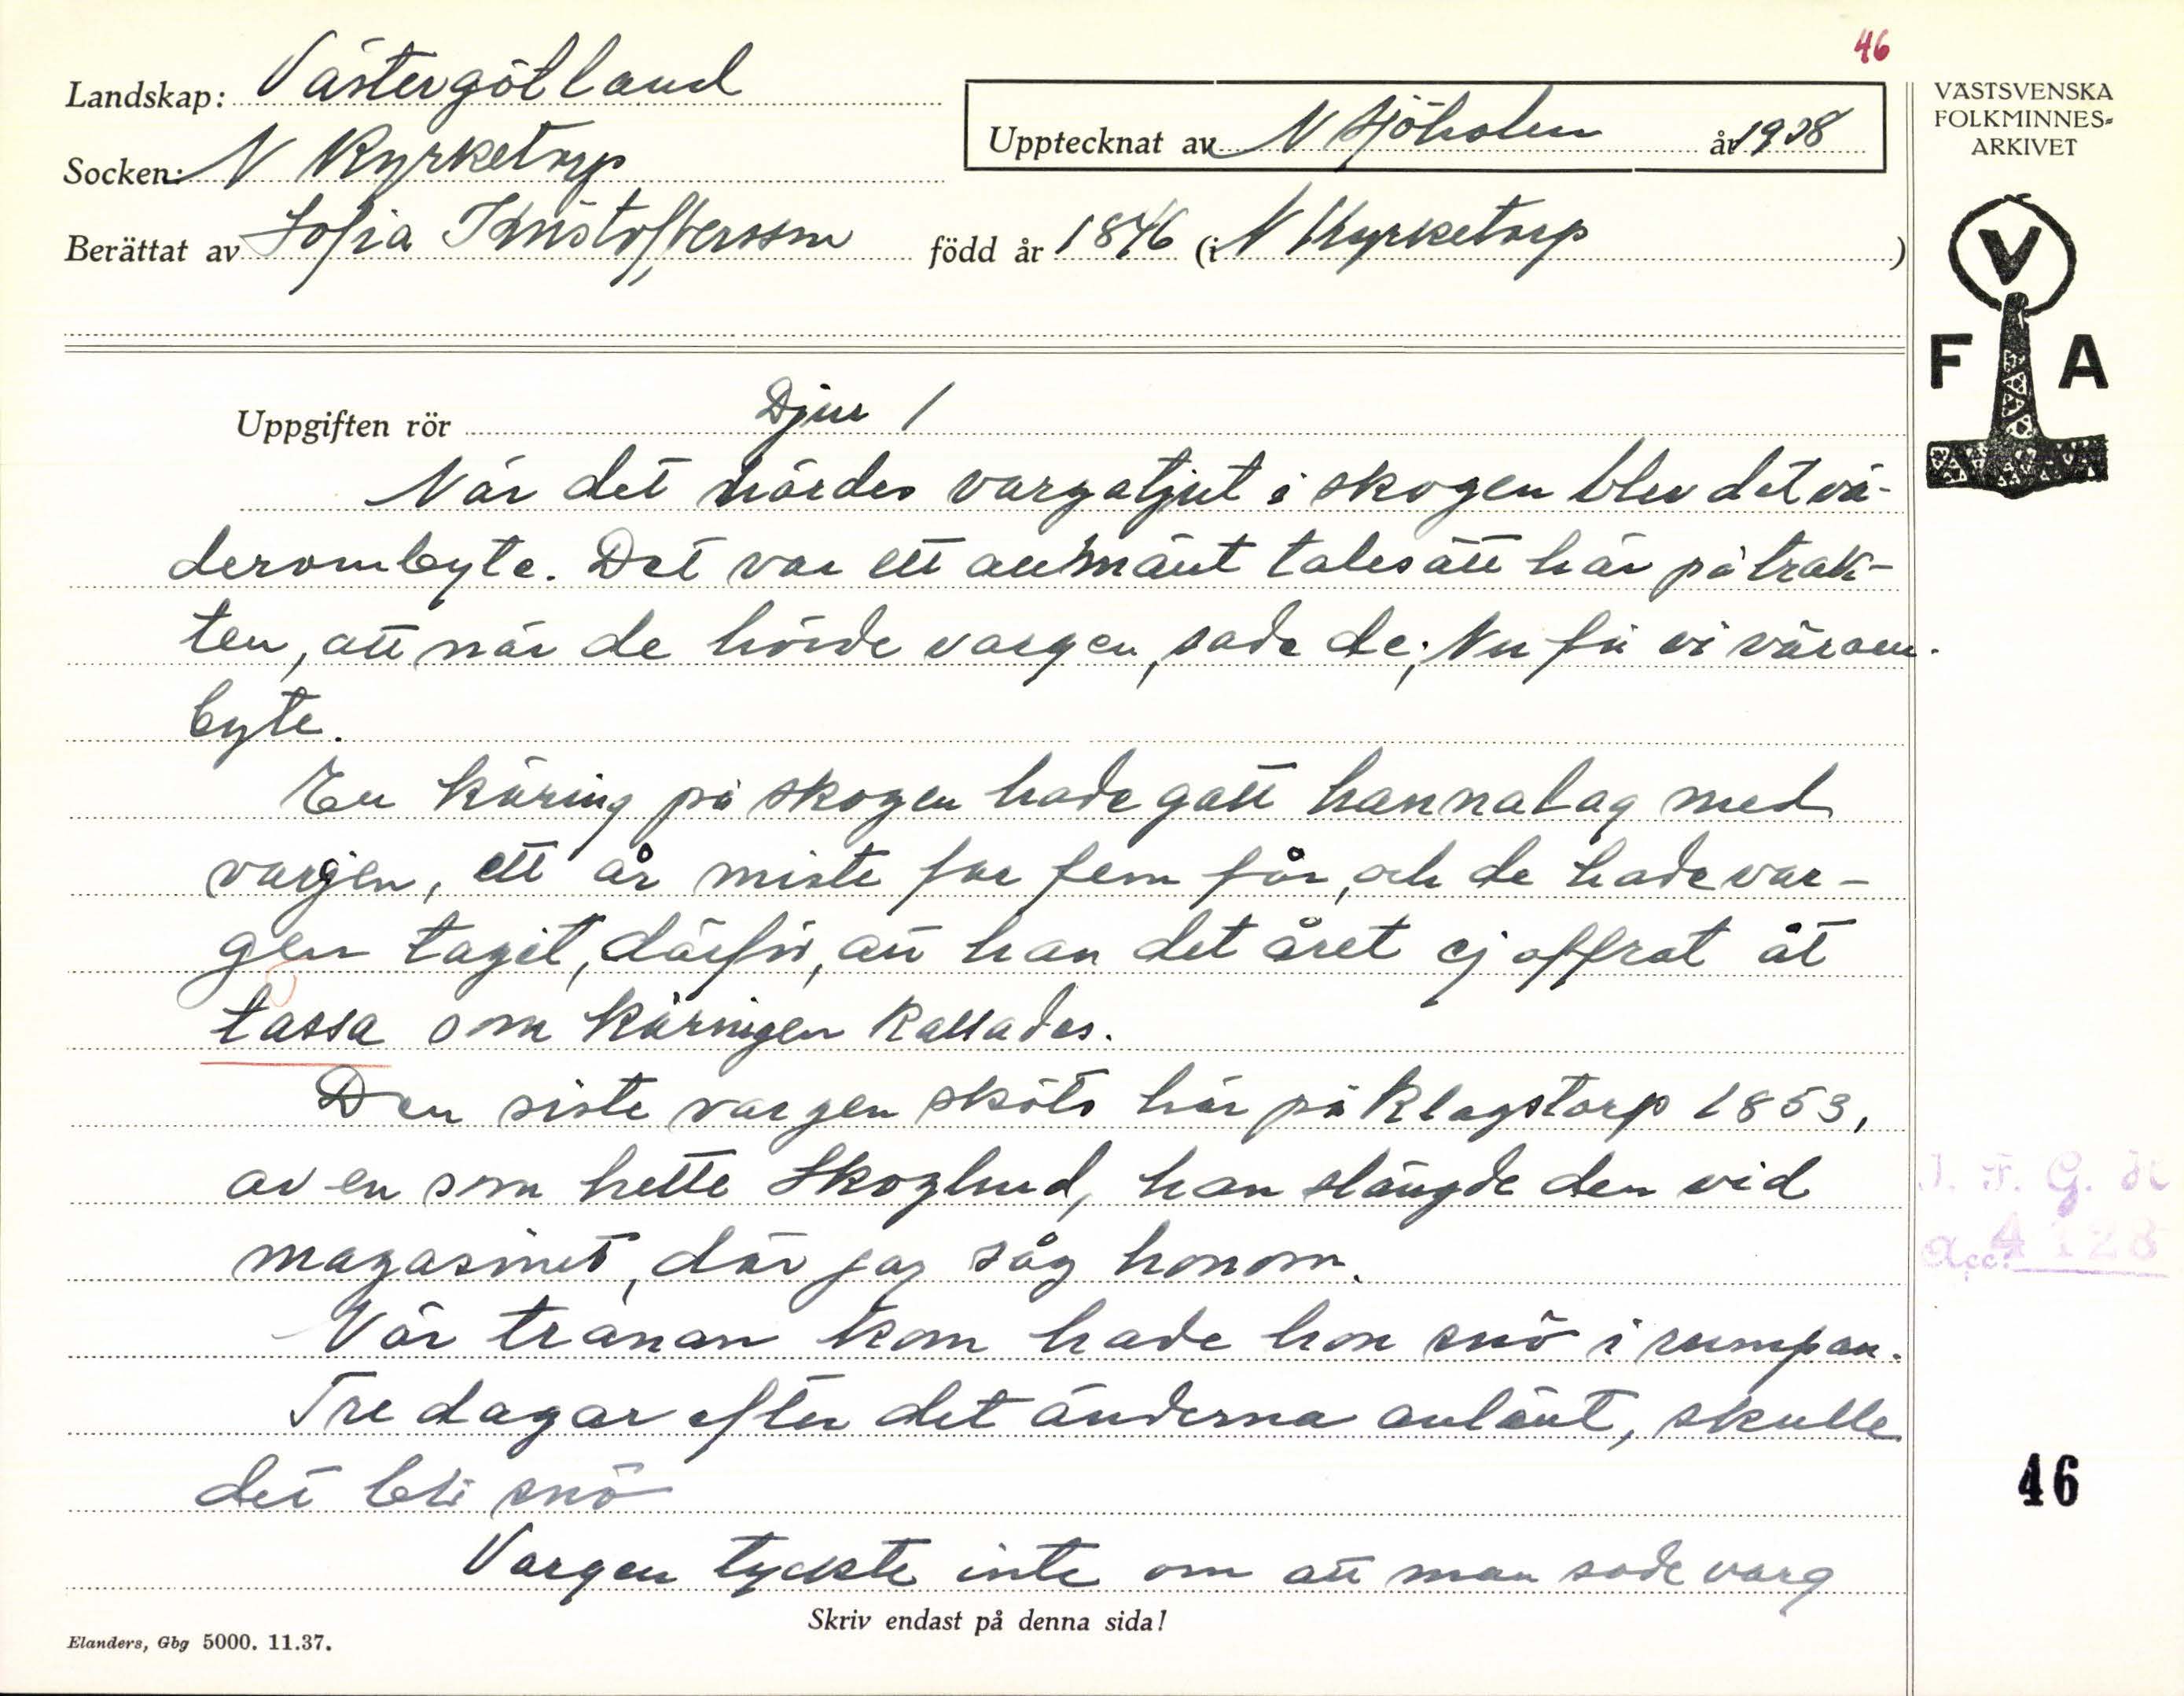 46
Landskap: Västergötland
Socken: N Kyrketorp
Upptecknat av N Sjöholm år 1938
Berättat av Sofia Kristoffersson född år 1846 (i N Kyrketorp )
VÄSTSVENSKA
FOLKMINNES-
ARKIVET
V
F A
Uppgiften rör Djur 1
När det hördes vargatjut i skogen blev det vä-
derombyte. Det var ett allmänt talesätt här på trak-
ten, att när de hörde vargen, sade de; Nu få vi värom-
byte.
En käring på skogen hade gått hannalag med
vargen, ett år miste far fem får, och de hade var-
gen tagit, därför, att han det året ej offrat åt
tassa som käringen kallades.
Den siste vargen sköts här på Klagstorp 1853,
av en som hette Skoglund, han slängde den vid
magasinet, där jag såg honom.
När tranan kom hade hon snö i rumpan.
Tre dagar efter det änderna anlänt, skulle
det bli snö
Vargen tyckte inte om att man sade varg
I. F. G. H
Acc. 4128
46
Skriv endast på denna sida!
Elanders, Gbg 5000. 11.37.